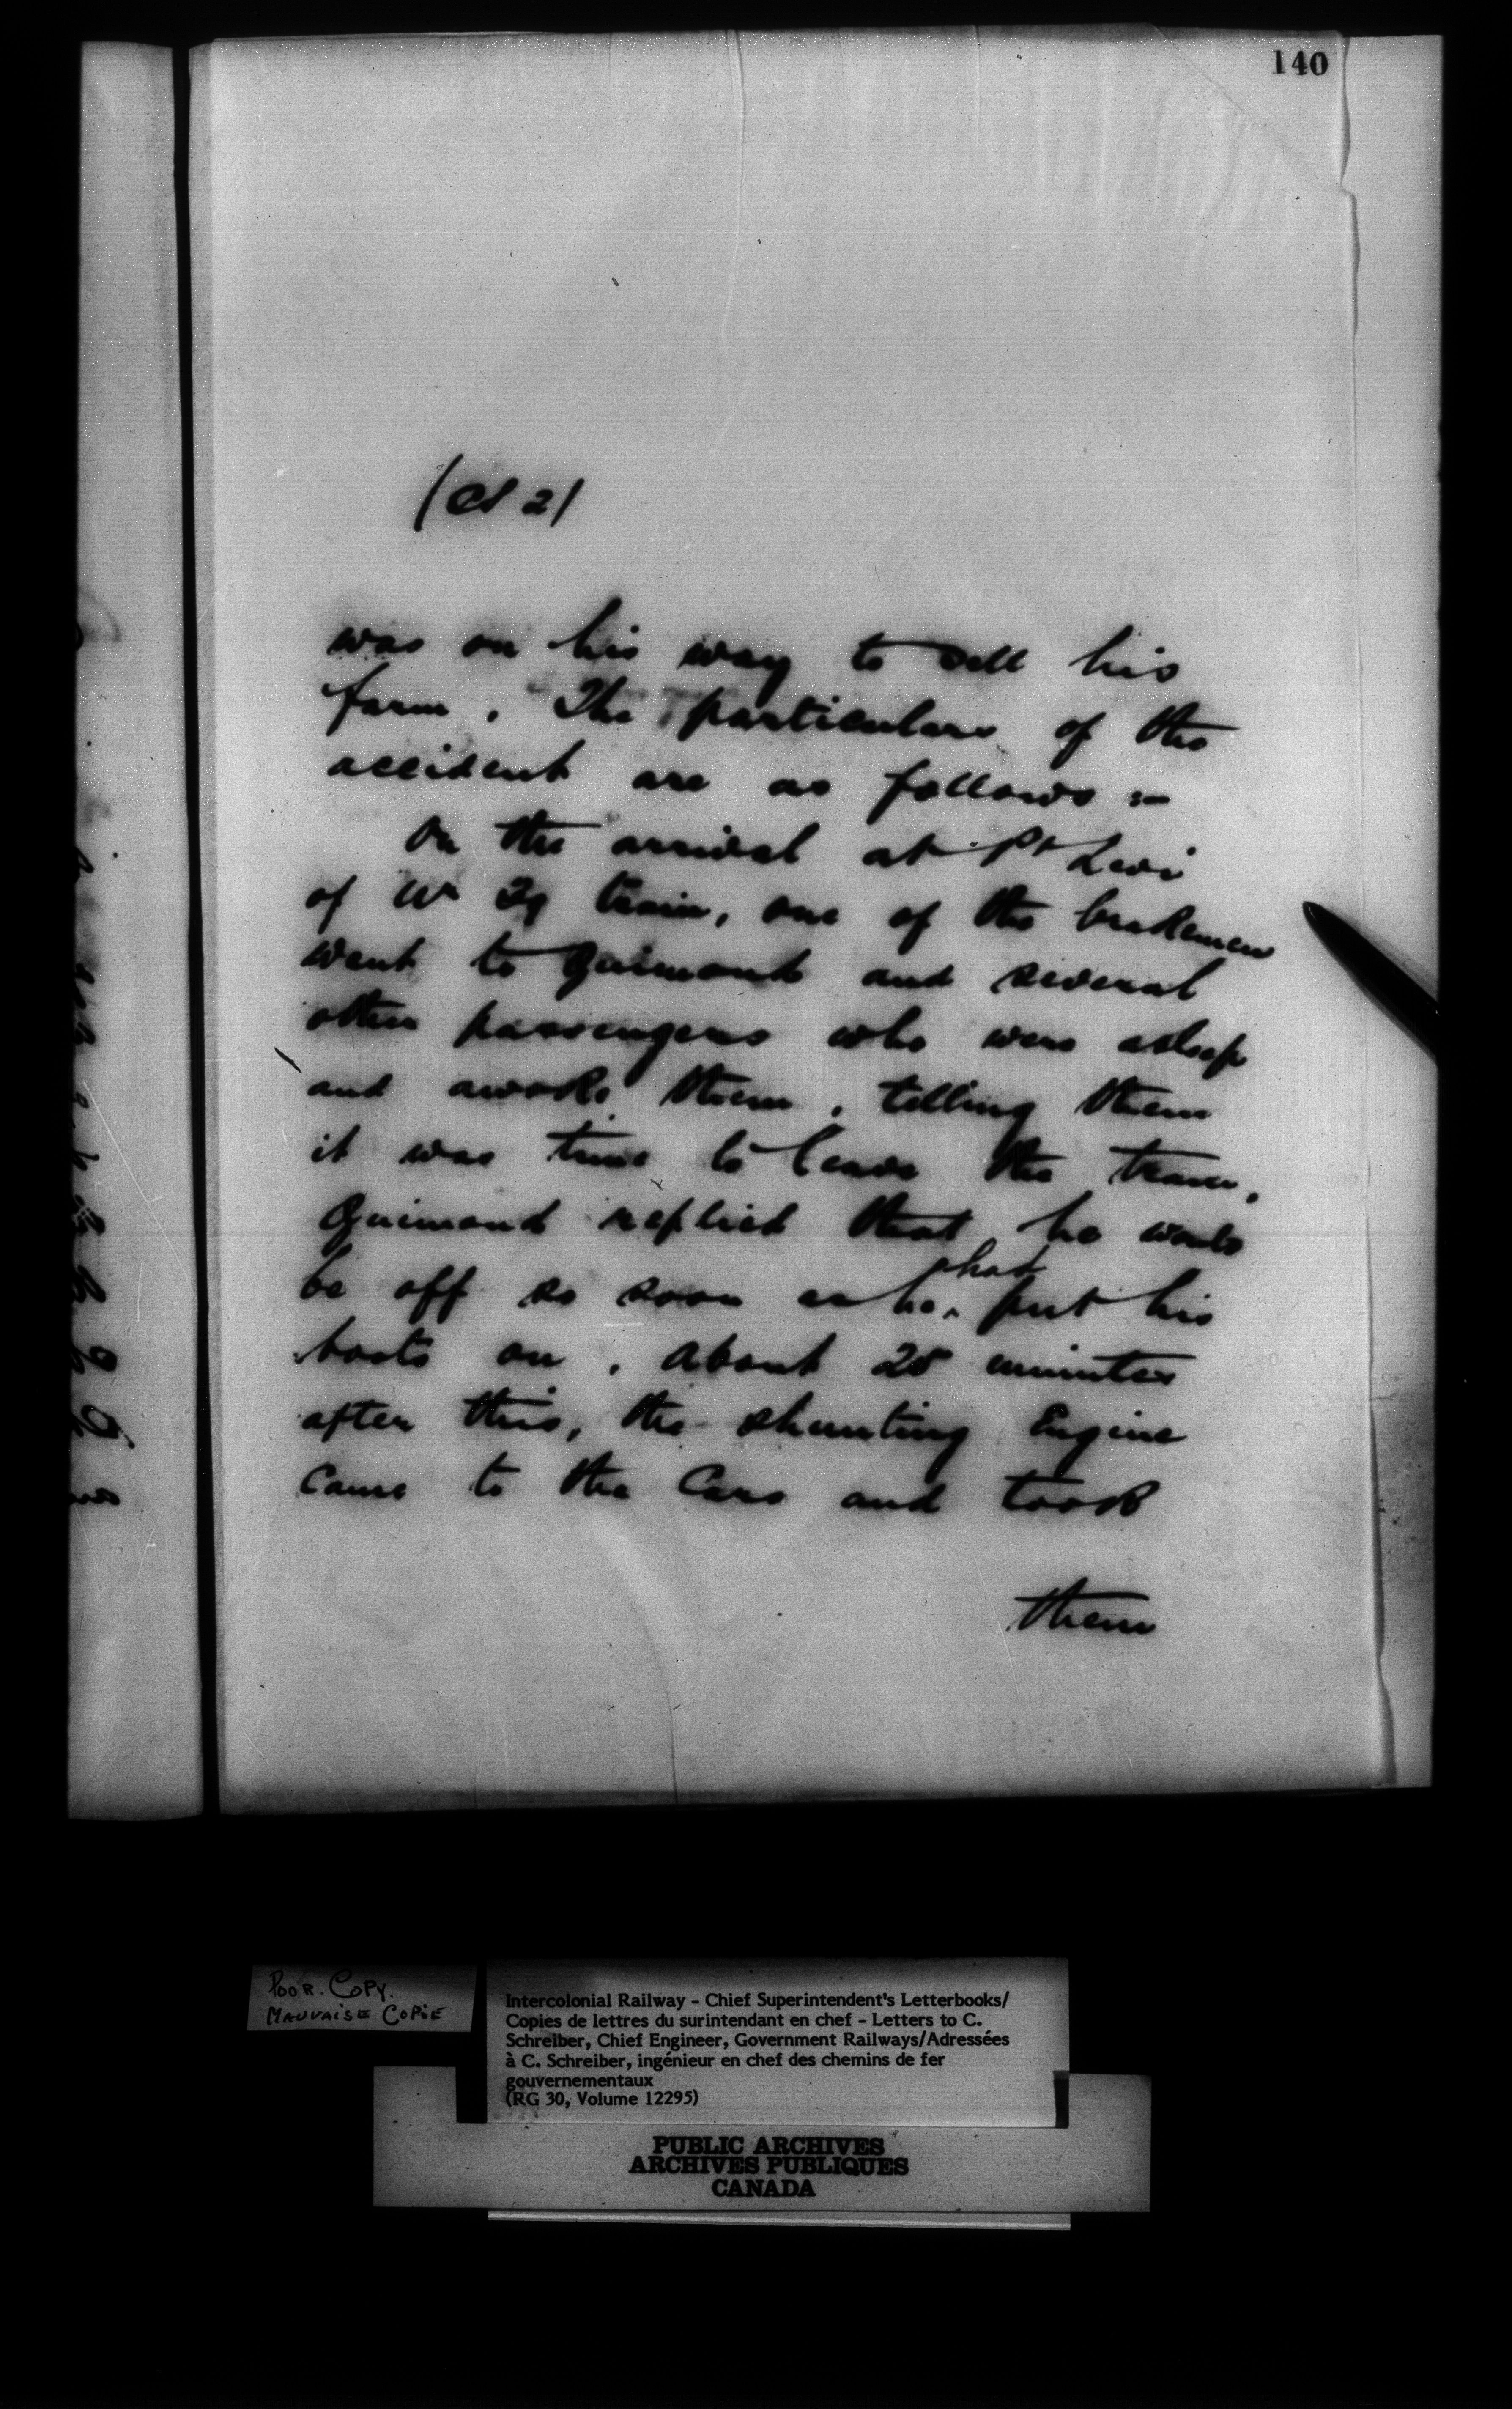 140
(CS 2)
was on his way to sell his
farm. The particulars of the
accident are as follows :-
On the arrival at Pt Levi
of No 39 train, one of the brakemen
went to Guimond and several
other passengers who were asleep
and awoke them, telling them
it was time to leave the train.
Guimond replied that he would
be off so soon as he had put his
boots on. About 20 minutes
after this, the shunting Engine
came to the Cars and took
them
POOR COPY.
MAUVAISE COPIE
Intercolonial Railway - Chief Superintendent's Letterbooks/
Copies de lettres du surintendant en chef - Letters to C.
Schreiber, Chief Engineer, Government Railways/Adressées
à C. Schreiber, ingénieur en chef des chemins de fer
gouvernementaux
(RG 30, Volume 12295)
PUBLIC ARCHIVES
ARCHIVES PUBLIQUES
CANADA